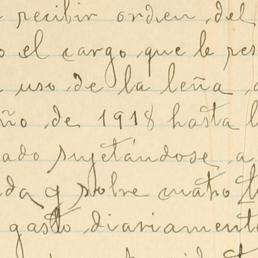 recibir orden del
o el cargo que le res
uso de la leña
ño de 1918 hasta l
ado sujetándose a
da y sobre cuatro t
gasto diariamente